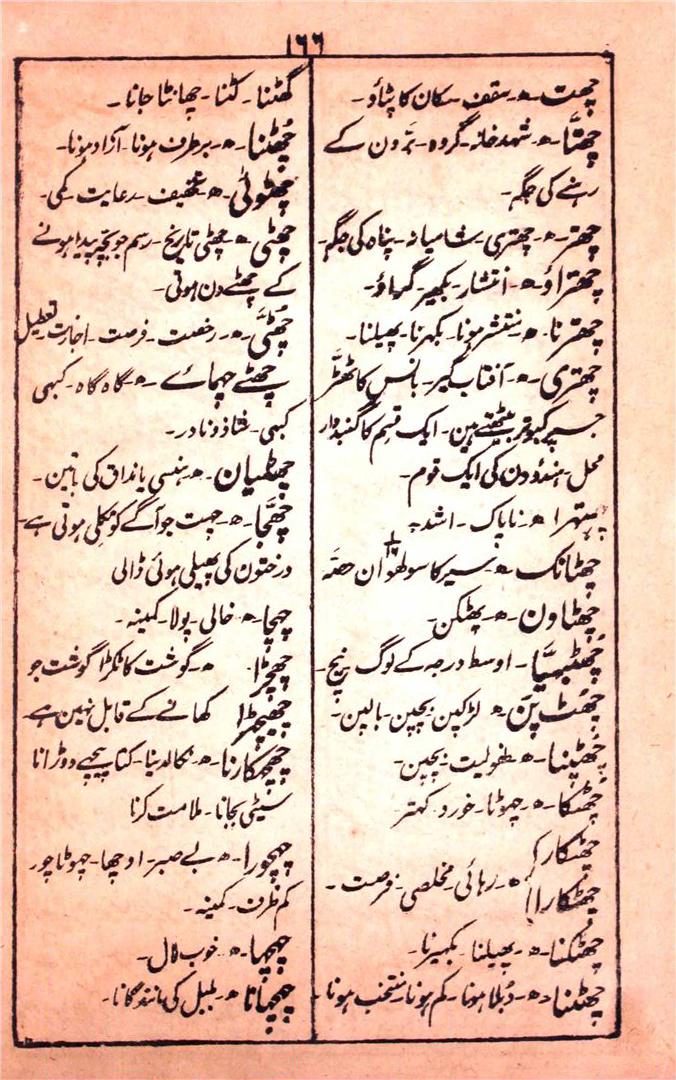 ۱۶۶
چھت۔ ھ۔ سقف۔ مکان کا پٹاؤ۔
چھتّا۔ ھ۔ شہد خانہ۔ گروہ۔ برّون کے
رہنے کی جگہ۔
چھتر۔ ھ۔ چھتری۔ شامیانہ۔ پناہ کی جگہ۔
چھتراؤ۔ ھ۔ انتشار۔ بکھیر۔
چھترنا۔ ھ۔ منتشر ہونا۔ بکہرنا۔ پھیلنا۔
چھتری۔ ھ۔ آفتاب گیر۔ بانس کا ٹھٹّر
جسپر کبوتر بیٹھتے ہین۔ ایک قسم کا گنبد دار
محل۔ ہندؤون کی ایک قوم۔
ھ۔ ناپاک۔ اشد۔
چھٹانک۔ ھ۔ سیر کا سولھوان حصّہ
چھٹاون۔ ھ۔ پھٹکن۔
چھٹبھیّا۔ اوسط درجہ کے لوگ۔ نیچ۔
چھٹ پن۔ ھ۔ لڑکپن۔ بچپن۔ بالپن۔
چھٹپنا۔ ھ۔ طفولیت۔ بچپن۔
چھٹکا۔ ھ۔ چھوٹا۔ خورد۔ کہتر
چھٹکار
چھٹکارا ھ۔ رہائی۔ مخلصی۔ فرصت۔
چھٹکنا۔ ھ۔ پھیلنا۔ بکہیرنا۔
چھٹنا۔ ھ۔ دُبلا ہونا۔ کم ہونا۔ منتخب ہونا۔
گھٹنا۔ کٹنا۔ چھانٹا جانا۔
چُھٹنا۔ ھ۔ برطرف ہونا۔ آزاد ہونا۔
چھٹوئی۔ ھ۔ تخفیف۔ رعایت۔ کمی۔
چھٹی۔ ھ۔ چھٹی تاریخ۔ رسم جو بچہ پیدا ہونے
کے چھٹے دن ہوتی۔
چُھٹّی۔ ھ۔ رخصت۔ فرصت۔ اجازت۔ تعطیل
چھٹے چہماہے۔ ھ۔ گاہ گاہ۔ کبہی
کبہی۔ شاذ و نادر۔
ھ۔ ہنسی یا مذاق کی باتین۔
چھجّا۔ ھ۔ چہت جو آگے کو نکلی ہوتی ہے۔
درختون کی پھیلی ہوئی ڈالی
چہچا۔ ھ۔ خالی۔ پولا۔ کمینہ۔
چھچڑا۔ ھ۔ گوشت کا ٹکڑا گوشت جو
چھیچڑا کھانے کے قابل نہین ہے۔
چھچکارنا۔ ھ۔ نکالدینا۔ کتا پیچہے دوڑانا
سیٹی بجانا۔ ملامت کرنا
چہچورا۔ ھ۔ بے صبر۔ اوچھا۔ چہوٹا چور
کم ظرف۔ کمینہ۔
چہچہا۔ ھ۔ خوب لال۔
چہچہانا۔ ھ۔ بلبل کی مانند گانا۔